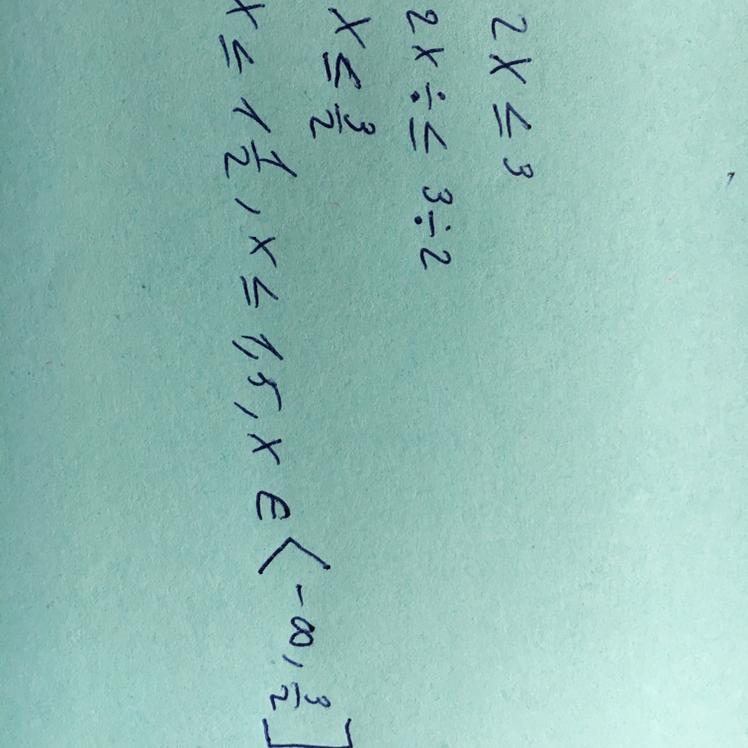 2x ≤ 3
2x ÷ ≤ 3 ÷ 2
x ≤ 3/2
x ≤ 1 1/2, x ≤ 1,5, x ∈ ⟨-∞, 3/2]